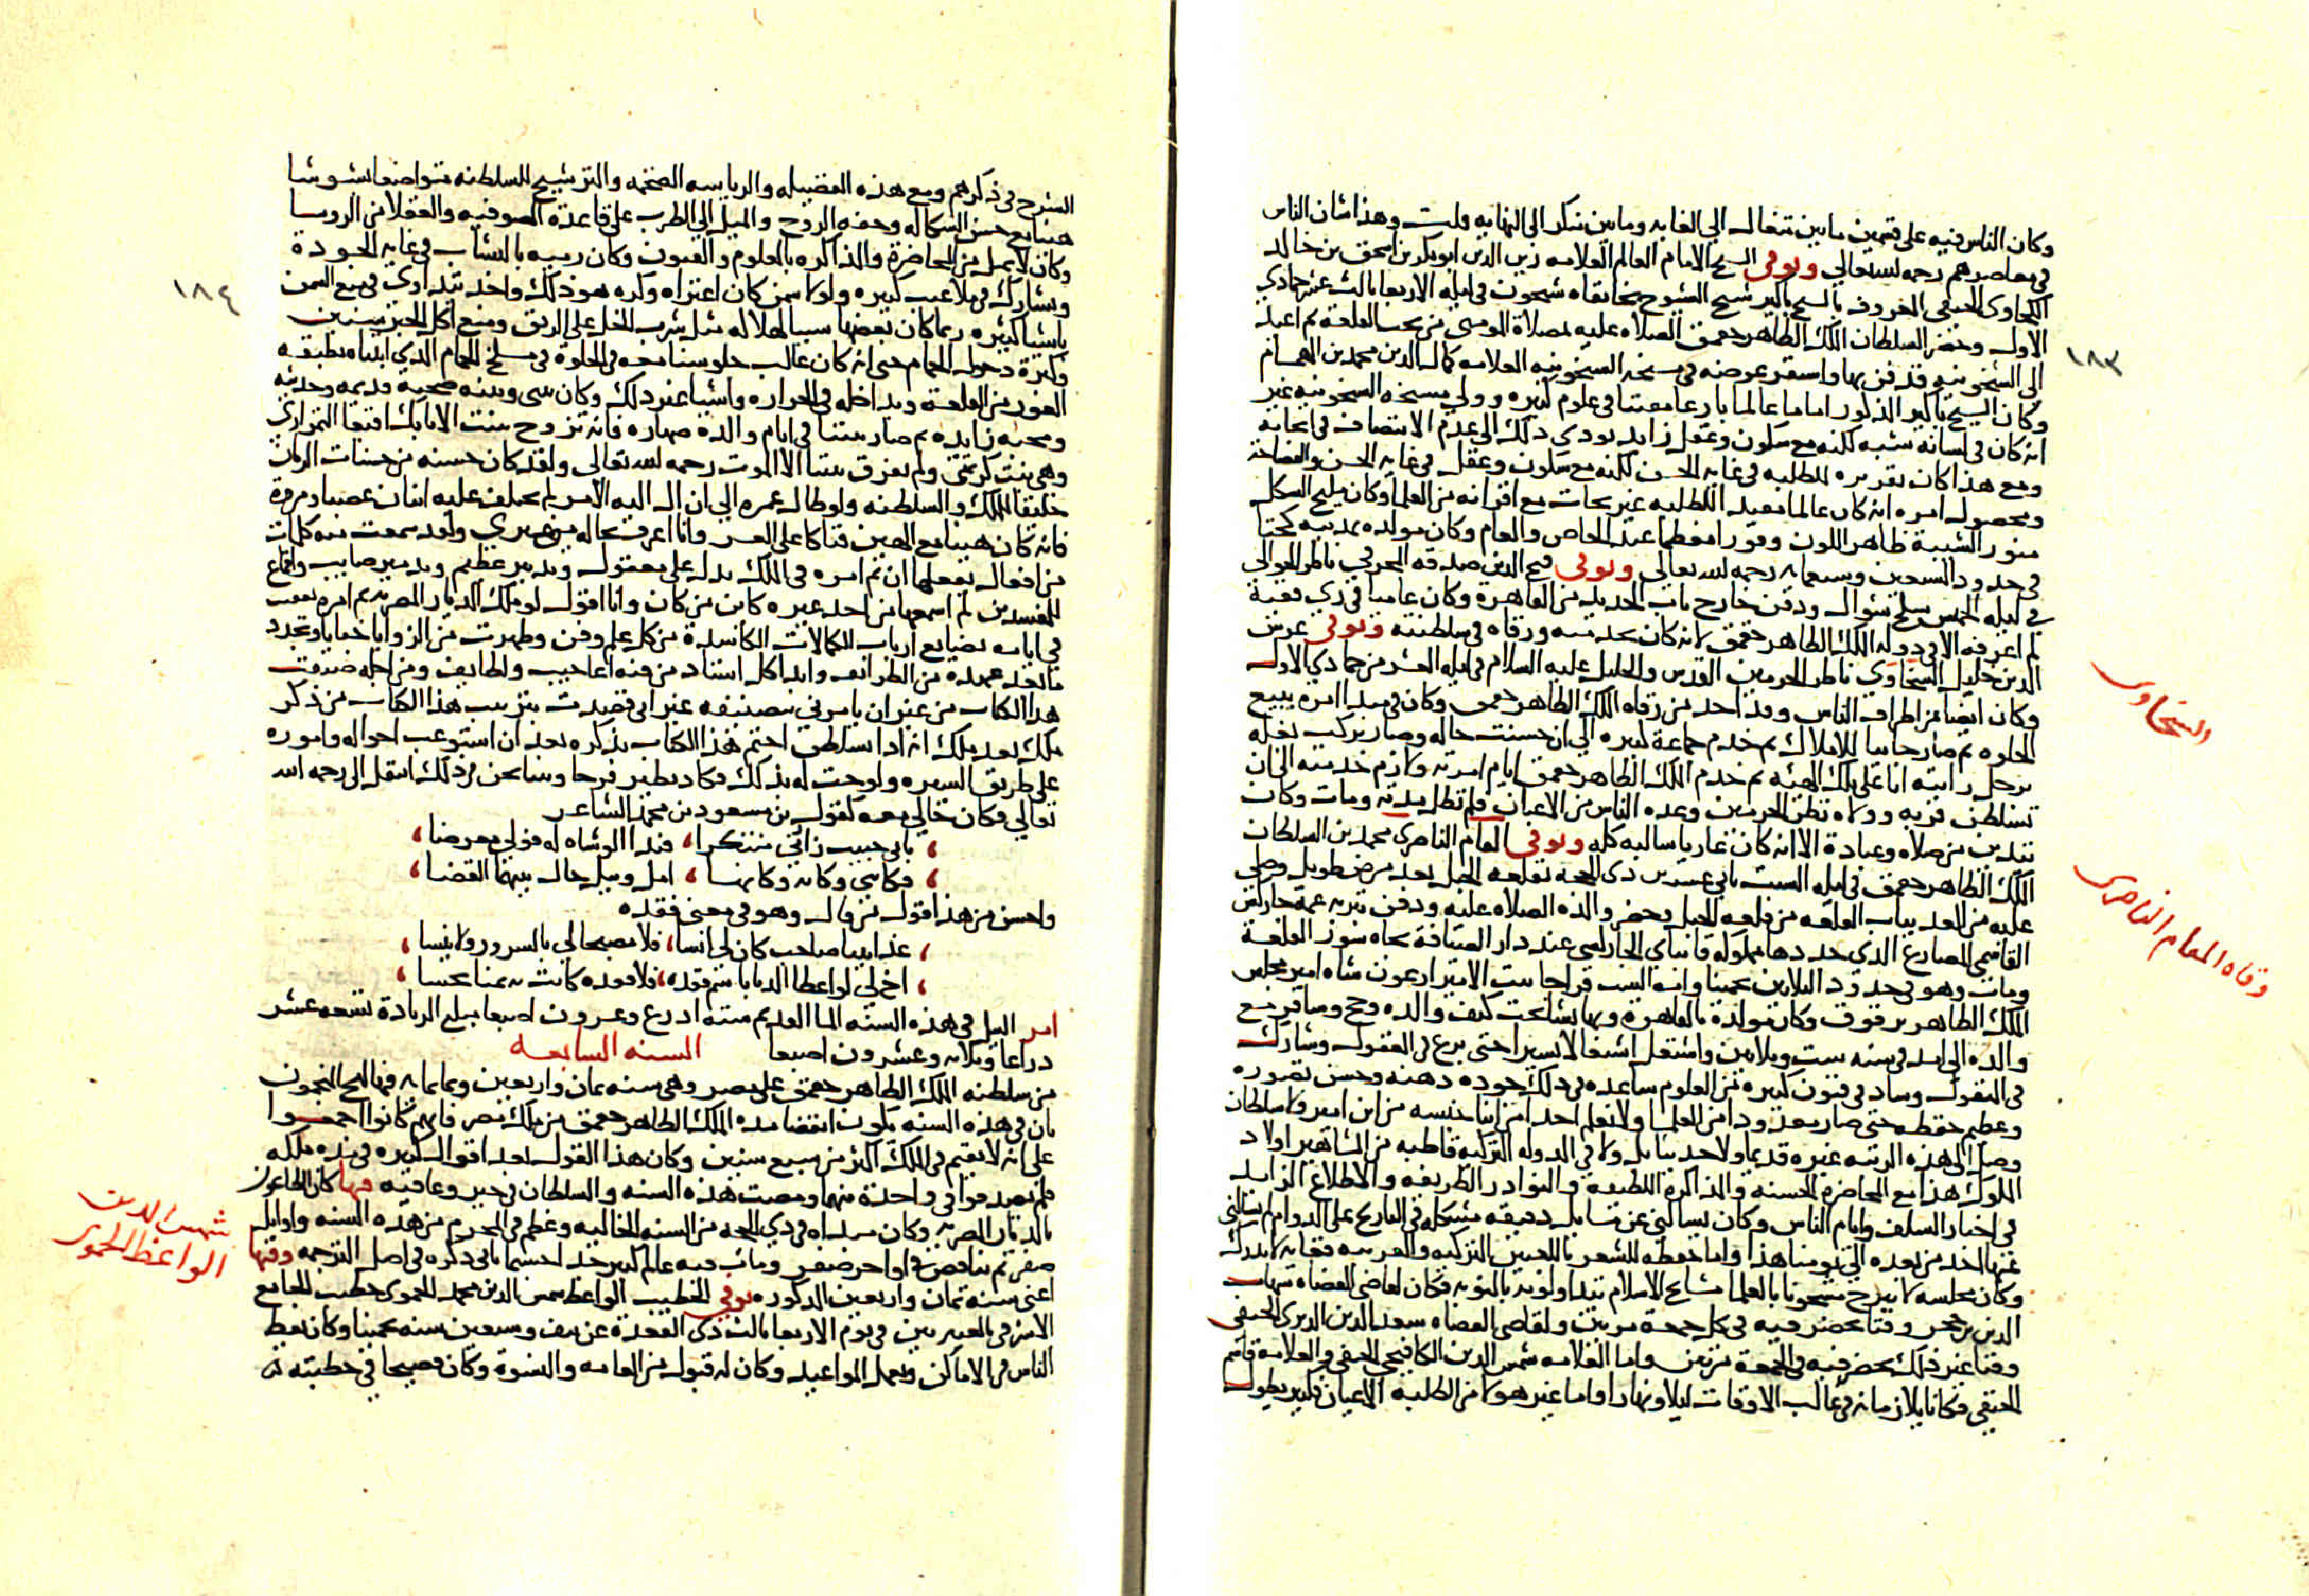 وكان الناس فيه على قسمين ما بين متغال الى الغايه وما بين منكر الى النهايه وهذا شان الناس
فى معاصرهم رحمه الله تعالى وتوفى الشيخ الامام العالم العلامه زين الدين ابو بكر بن اسحق بن خالد
الكختاوى الحنفى المعروف بالشيخ باكير شيخ الشيوخ بخانقاه شيخون فى ليله الاربعا ثالث عشر جمادى
الاول وحضر السلطان الملك الظاهر جقمق الصلاه عليه بمصلاة المومنى من تحت القلعة ثم اعيد
الى الشيخونيه فدفن بها واستقر عوضه فى مشيخه الشيخونيه العلامه كمال الدين محمد بن الهمام
وكان الشيخ باكير المذكور اماما عالما بارعا مفتنا فى علوم كثيره وولى مشيخه الشيخونيه غير
انه كان فى لسانه شبه لكنه مع سكون وعقل زايد يودى ذلك الى عدم الانتصاف فى ابحاثه
ومع هذا كان تقريره للطلبه فى غايه الحسن لكنه مع سكون وعقل فى غايه الحسن والفصاحة
ومحصول امره انه كان عالما مفيد الطلبه غير بحاث مع اقرانه من العلما وكان مليح الشكل
منور الشيبة ظاهر اللون وقورا معظما عند الخاص والعام وكان مولده بمدينه كختا
فى حدود السبعين وسبعمايه رحمه الله تعالى وتوفى فتح الدين صدقه المحرقى ناظر الجوالى
فى ليله الخميس سلخ شوال ودفن خارج باب الجديد من القاهرة وكان عاميا فى زى فقيه
لم اعرفه الا فى دوله الملك الظاهر جقمق لانه كان بخدمته ورقاه فى سلطنته وتوفى غرس
الدين خليل السخاوى ناظر الحرمين القدس والخليل عليه السلام فى ليله العشر من جمادى الاول
وكان ايضا من اطراف الناس وهو احد من رقاه الملك الظاهر جقمق وكان فى مبدا امره يبيع
الحلوه ثم صار جابيا للاملاك ثم خدم جماعة كثيره الى ان حسنت حاله وصار يركب بغله
برحل رايته انا على تلك الهيئه ثم خدم الملك الظاهر جقمق ايام امرته ولازم خدمته الى ان
تسلطن قربه وولاه نظر الحرمين وعده الناس من الاعيان فلم تطل مدته ومات وكان
يتدين من صلاه وعبادة الا انه كان عاريا ساليه كله وتوفى المقام الناصرى محمد بن السلطان
الملك الظاهر جقمق فى ليله السبت ثانى عشرين ذى الحجة بقلعه الجبل بعد مرض طويل وصلى
عليه من الغد بباب القلعه من قلعه الجبل وحضر والده الصلاه عليه ودفن بتربه عمه جاركس
القاسمى المصارع الذى جددها مملوكه قانباى الجاركسى عند دار الضيافة تجاه سور القلعة
ومات وهو فى حدود الثلاثين تخمينا وامه الست قراجا بنت الامير ارغون شاه امير مجلس
الملك الظاهر برقوق وكان مولده بالقاهرة وبها نشا تحت كنف والده وحج وسافر مع
والده الى امد فى سنه ست وثلاثين واشتغل اشتغالا يسيرا حتى برع فى المعقول وشارك
فى المنقول وساد فى فنون كثيره من العلوم ساعده فى ذلك جوده ذهنه وحسن تصوره
وعظيم حفظه حتى صار معدودا من العلما ولا نعلم احدا من ابنا جنسه من ابن امير ولا سلطان
وصل الى هذه الرتبه غيره قديما ولا حديثا بل ولا فى الدوله التركيه قاطبه من المشاهير اولاد
الملوك هذا مع المحاضرة الحسنه والمذاكرة اللطيفه والنوادر الظريفه والاطلاع الزايد
فى اخبار السلف وايام الناس وكان يسالنى عن مسايل دقيقه مشكله فى التاريخ على الدوام لم يسالنى
عنها احد من بعده الى يومنا هذا واما حفظه للشعر باللغتين التركيه والعربيه فغايه لا تدرك
وكان مجلسه لا يبرح مشحونا بالعلما مشايخ الاسلام يتداولونه بالنوبه فكان لقاضى القضاه شهاب
الدين بن حجر وقتا يحضر فيه فى كل جمعة مرتين ولقاضى القضاه سعد الدين الديرى الحنفى
وقتا غير ذلك يحضر فيه فى الجمعة مرتين واما العلامه شمس الدين الكافيجى الحنفى والعلامه قاسم
الحنفى فكانا يلازمانه فى غالب الاوقات ليلا ونهارا واما غير هولا من الطلبه الاعيان فكثير يطول
١٨٣
السخاوى
وفاه المقام الناصرى
الشرح فى ذكرهم ومع هذه الفضيله والرياسه الضخمه والترشيح للسلطنه متواضعا بشوشا
هينا مع حسن الشكاله وخفه الروح والميل الى الطرب على قاعدة الصوفيه والعقلا من الروسا
وكان لا يمل من المحاضرة والمذاكره بالعلوم والفنون وكان رميه بالنشاب فى غايه الجودة
ويشارك فى ملاعب كثيره ولولا سمن كان اعتراه وكره هو ذلك واخذ يتداوى فى منع السمن
باشيا كثيره ربما كان بعضها سببا لهلاكه مثل شرب الخل على الريق ومنع اكل الخبز سنين
وكثرة دخول الحمام حتى انه كان غالب جلوسنا معه فى الخلوة فى مسلخ الحمام الذى ابتناه بطبقه
الغور من القلعة ويداخله فى الحراره واشيا غير ذلك وكان بينى وبينه صحبة قديمه وحديثه
ومحبه زايده ثم صار بيننا فى ايام والده صهاره فانه تزوج بنت الاتابك اقبغا التمرازى
وهى بنت كريمتى ولم يفرق بيننا الا الموت رحمه الله تعالى ولقد كان حسنه من حسنات الزمان
خليقا للملك والسلطنه ولو طال عمره الى ان ال اليه الامر لم يختلف عليه اثنان غصبا ومروة
فانه كان هينا مع الهين فتاكا على العسر وانا اعرف بحاله من غيرى ولقد سمعت منه كلمات
من افعال يفعلها ان تم امره فى الملك يدل على معقول وتدبير عظيم وتدبير صايب واقماع
المفسدين لم اسمعها من احد غيره كاين من كان وانا اقول لو ملك الديار المصريه ثم امره نفقت
فى ايامه بضايع ارباب الكمالات الكاسدة من كل علم وفن وظهرت من الزوايا خبايا وتجدد
ما بعد عهده من الطرايف وابدا كل استاد من فنه اعاجيب ولطايف ومن اجله صنفت
هذا الكتاب من غير ان يامرنى بتصنيفه غير انى قصدت بترتيب هذا الكتاب من ذكر
ملك بعد ملك انه اذا تسلطن اختم هذا الكتاب بذكره بعد ان استوعب احواله واموره
على طريق السيره ولوحت له بذلك فكاد يطير فرحا وبينا نحن فى ذلك انتقل الى رحمه الله
تعالى فكان حالى معه كقول بن مسعود بن محمد الشاعر
، بابى حبيب زارنى متنكرا ، فبدا الوشاه له فولى معرضا ،
، فكاننى وكانه وكانهما ، امل ونيل حال بينهما القضا ،
واحسن من هذا قول من قال وهو فى معنى فقده
، غدا بينا صاحب كان لى انسا ، فلا مصبحا لى بالسرور ولا ممسا ،
، اخ لى لو اعطا الدنا باسم فقده ، فلا فقده كانت به ثمنا بخسا ،
امر النيل فى هذه السنه الما القديم سته اذرع وعشرون اصبعا مبلغ الزيادة تسعه عشر
ذراعا وثلاثه وعشرون اصبعا السنه السابعه
من سلطنه الملك الظاهر جقمق على مصر وهى سنه ثمان واربعين وثمانمايه فيها لهج المنجمون
بان فى هذه السنه تكون انقضا مده الملك الظاهر جقمق من ملك مصر فانهم كانوا اجمعوا
على انه لا يقيم فى الملك اكثر من سبع سنين وكان هذا القول احد اقوال كثيره فى مده ملكه
فلم يصدقوا فى واحدة منهما ومضت هذه السنه والسلطان فى خير وعافيه فيها كان الطاعون
بالديار المصريه وكان مبداه فى ذى الحجه من السنه الخاليه وعظم فى المحرم من هذه السنه واوايل
صفر ثم تناقص فى اواخر صفر ومات فيه عالم كثير جدا حسبما ياتى ذكره فى اصل الترجمه وفيها
اعنى سنه ثمان واربعين المذكوره توفى الخطيب الواعظ شمس الدين محمد الحموى خطيب الجامع
الاشرفى بالعنبريين فى يوم الاربعا ثالث ذى القعدة عن نيف وسبعين سنه تخمينا وكان يعظ
الناس فى الاماكن ويعمل المواعيد وكان له قبول من العامه والنسوة وكان فصيحا فى خطبته له
١٨٤
شمس الدين
الواعظ الحموى